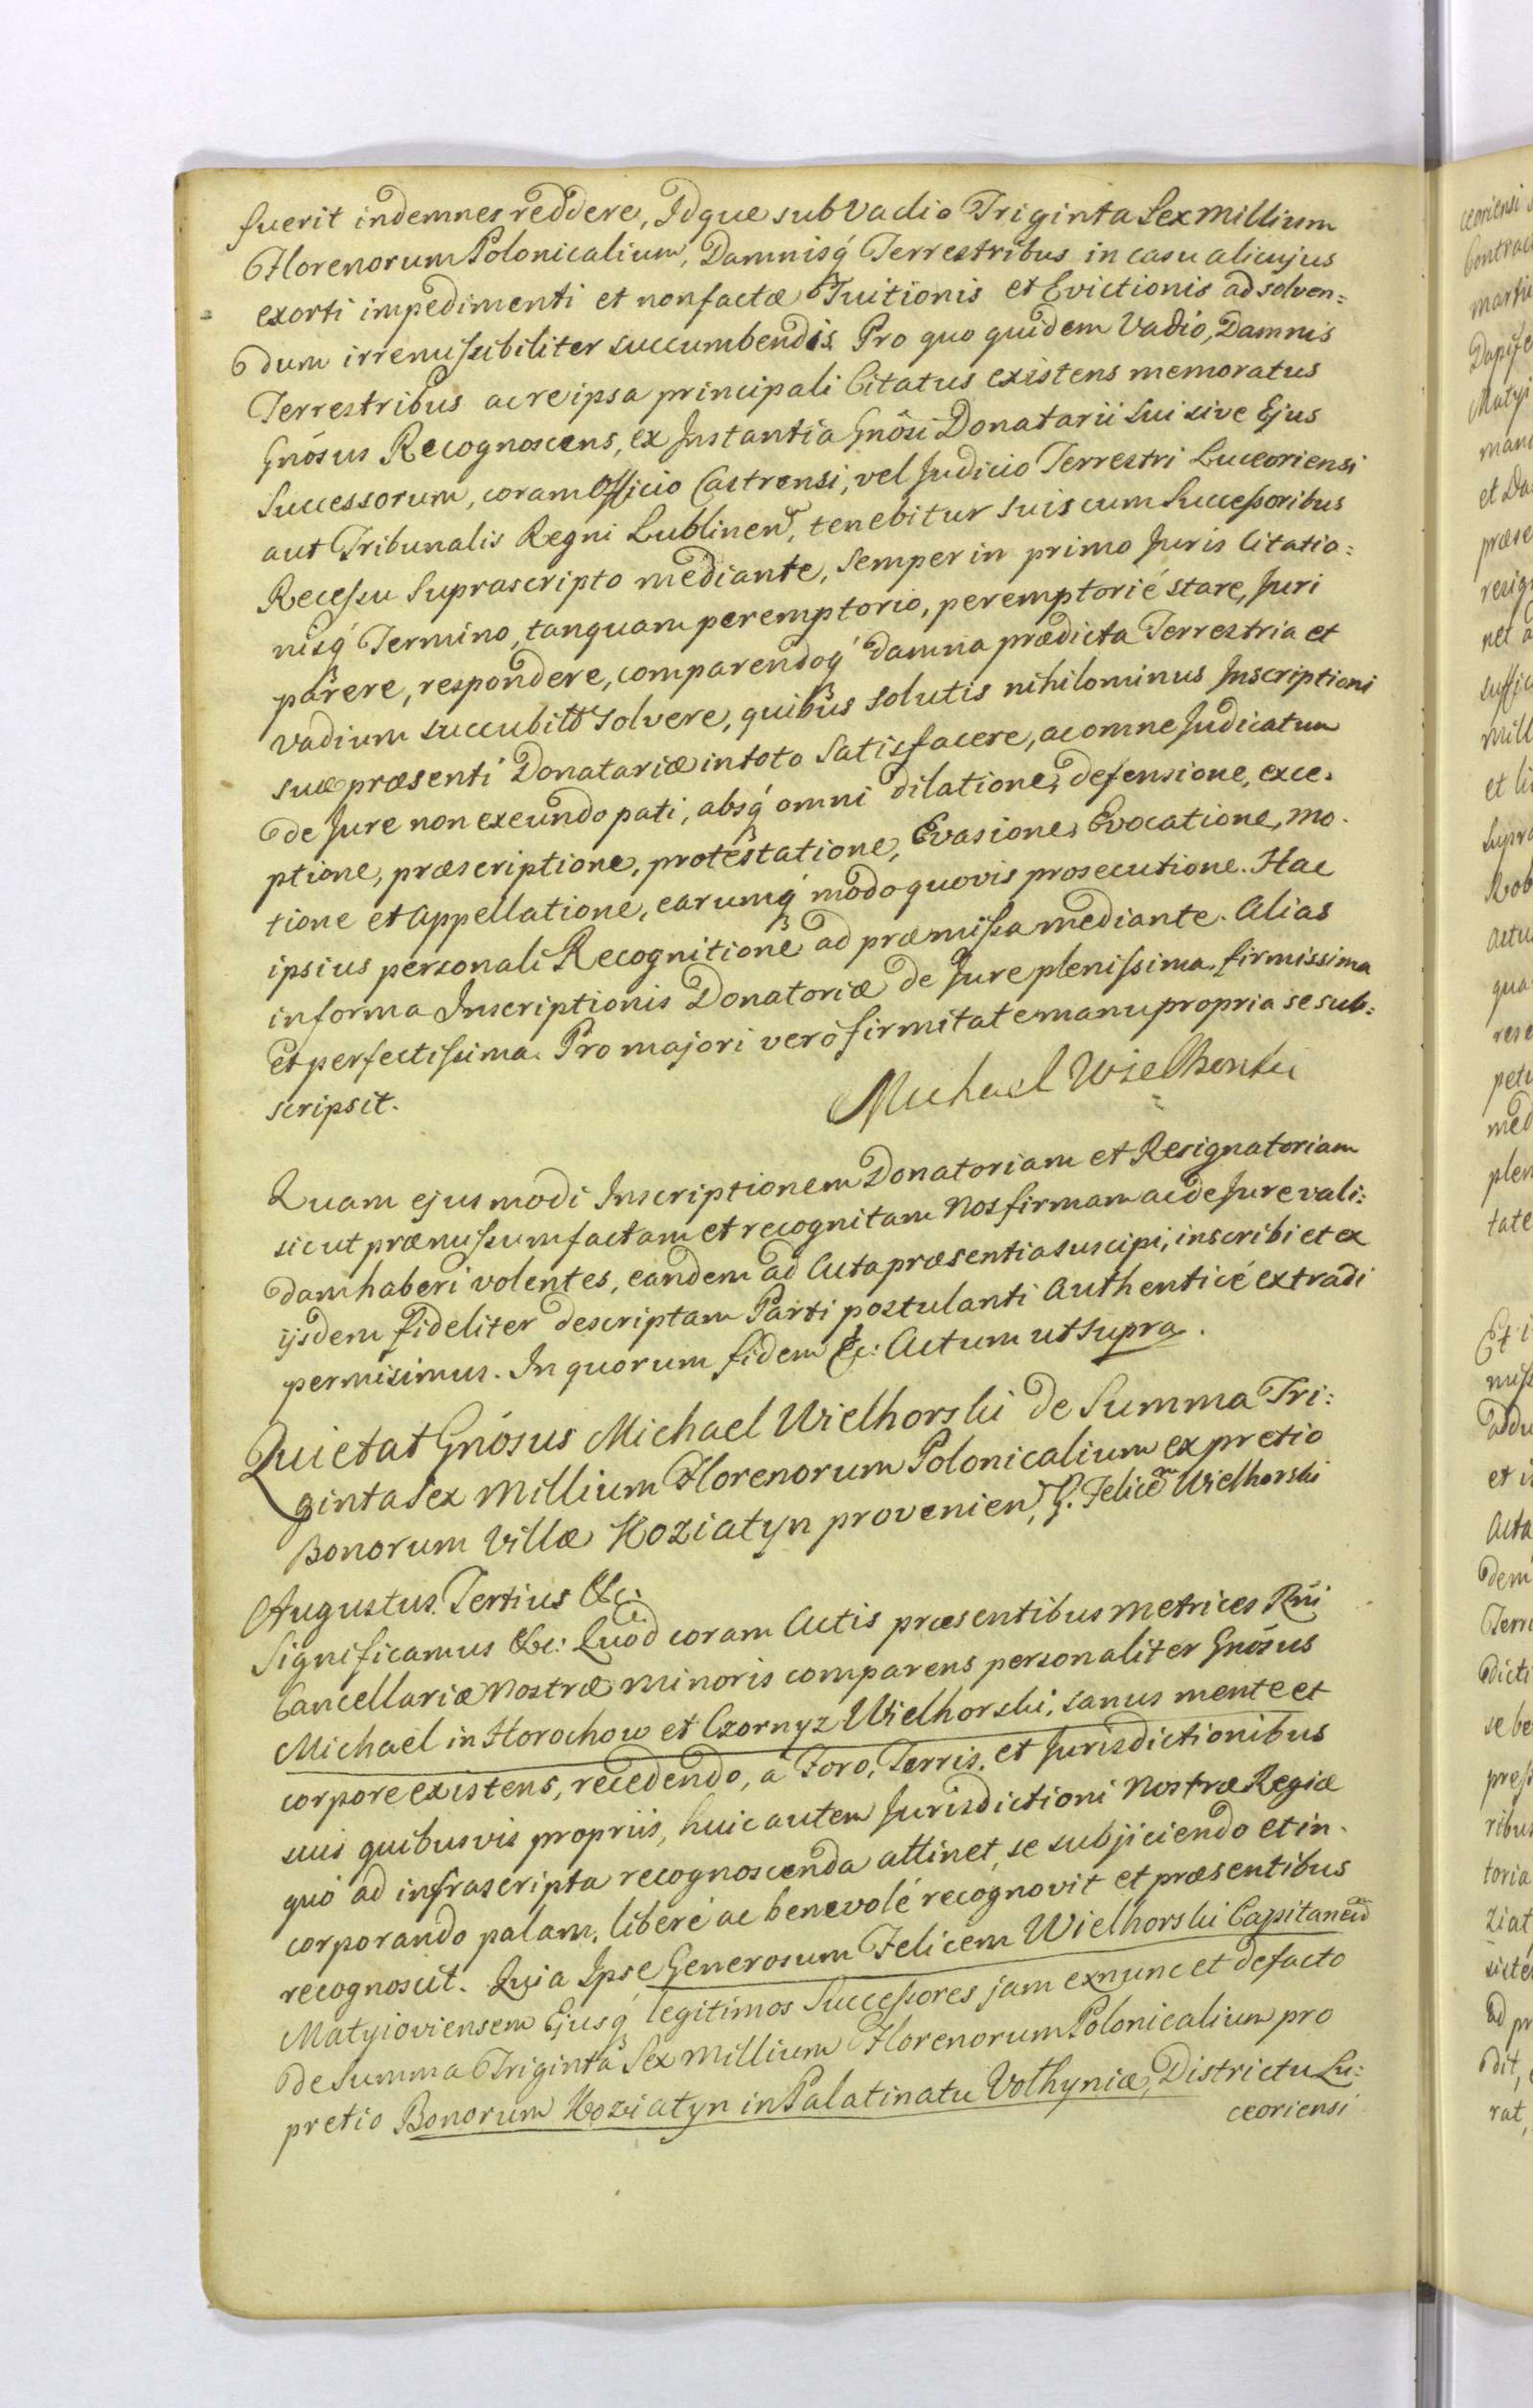 fuerit indemnes reddere, Idque sub Vadio Triginta Sex Millium
Florenorum Polonicalium, Damnisq́ Terrestribus in casu alicujus
exorti impedimenti et non factæ Tuitionis et Evictionis ad solven=
dum irremissibiliter succumbendis. Pro quo quidem Vadio, Damnis
Terrestribus ac re ipsa principali Citatus existens memoratus
Gnōsus Recognoscens, ex Instantia Gnōsi Donatarii Sui sive Ejus
Successorum, coram Officio Castrensi, vel Judicio Terrestri Luceoriensi
aut Tribunalis Regni Lublinen, tenebitur suis cum Successoribus
Recessu Suprascripto mediante, Semper in primo Juris Citatio=
nisq́ Termino, tanquam peremptorio, peremptorié stare, Juri
parere, respondere, comparendoq́ Damna prædicta Terrestria et
Vadium succubitō solvere, quibus solutis nihilominus Inscriptioni
suæ præsenti Donatariæ in toto Satisfacere, ac omne Judicatum
de Jure non exeundo pati, absq́ omni dilatione, defensione, exce=
ptione, præscriptione, protestatione, Evasione, Evocatione, mo=
tione et Appellatione, earumq́ modo quovis prosecutione. Hac
ipsius personali Recognitione ad præmissa mediante. Alias
in forma Inscriptionis Donatoriæ de Jure plenissima, firmissima
et perfectissima. Pro majori veró firmitate manu propria se sub=
scripsit.
Michael Wielhorski
Quam ejusmodi Inscriptionem Donatoriam et Resignatoriam
sicut præmissum factam et recognitam Nos firmam ac de Jure vali=
dam haberi volentes, eandem ad Acta præsentia suscipi, inscribi et ex
ijsdem fideliter descriptam Parti postulanti Authenticé extradi
permisimus. In quorum fidem &c: Actum ut Supra.
Quietat Gnōsus Michael Wielhorski de Summa Tri=
ginta Sex Millium Florenorum Polonicalium ex pretio
Bonorum Villæ Koziatyn provenien, G. Felicem Wielhorski
Augustus Tertius &c:
Significamus &c: Quod coram Actis præsentibus Metrices Rñi
Cancellariæ Nostræ minoris comparens personaliter Gnōsus
Michael in Horochow et Czornyz Wielhorski, sanus mente et
corpore existens, recedendo, á Foro, Terris, et Jurisdictionibus
suis quibusvis propriis, huic autem Jurisdictioni Nostræ Regiæ
quó ad infrascripta recognoscenda attinet, se subjiciendo et in=
corporando palam, liberé ac benevolé recognovit et præsentibus
recognoscit. Quia Ipse Generosum Felicem Wielhorski Capitaneum
Matyioviensem Ejusq́ legitimos Successores jam exnunc et de facto
de Summa Triginta Sex Millium Florenorum Polonicalium pro
pretio Bonorum Koziatyn in Palatinatu Volhyniæ, Districtu Lu=
ceoriensi